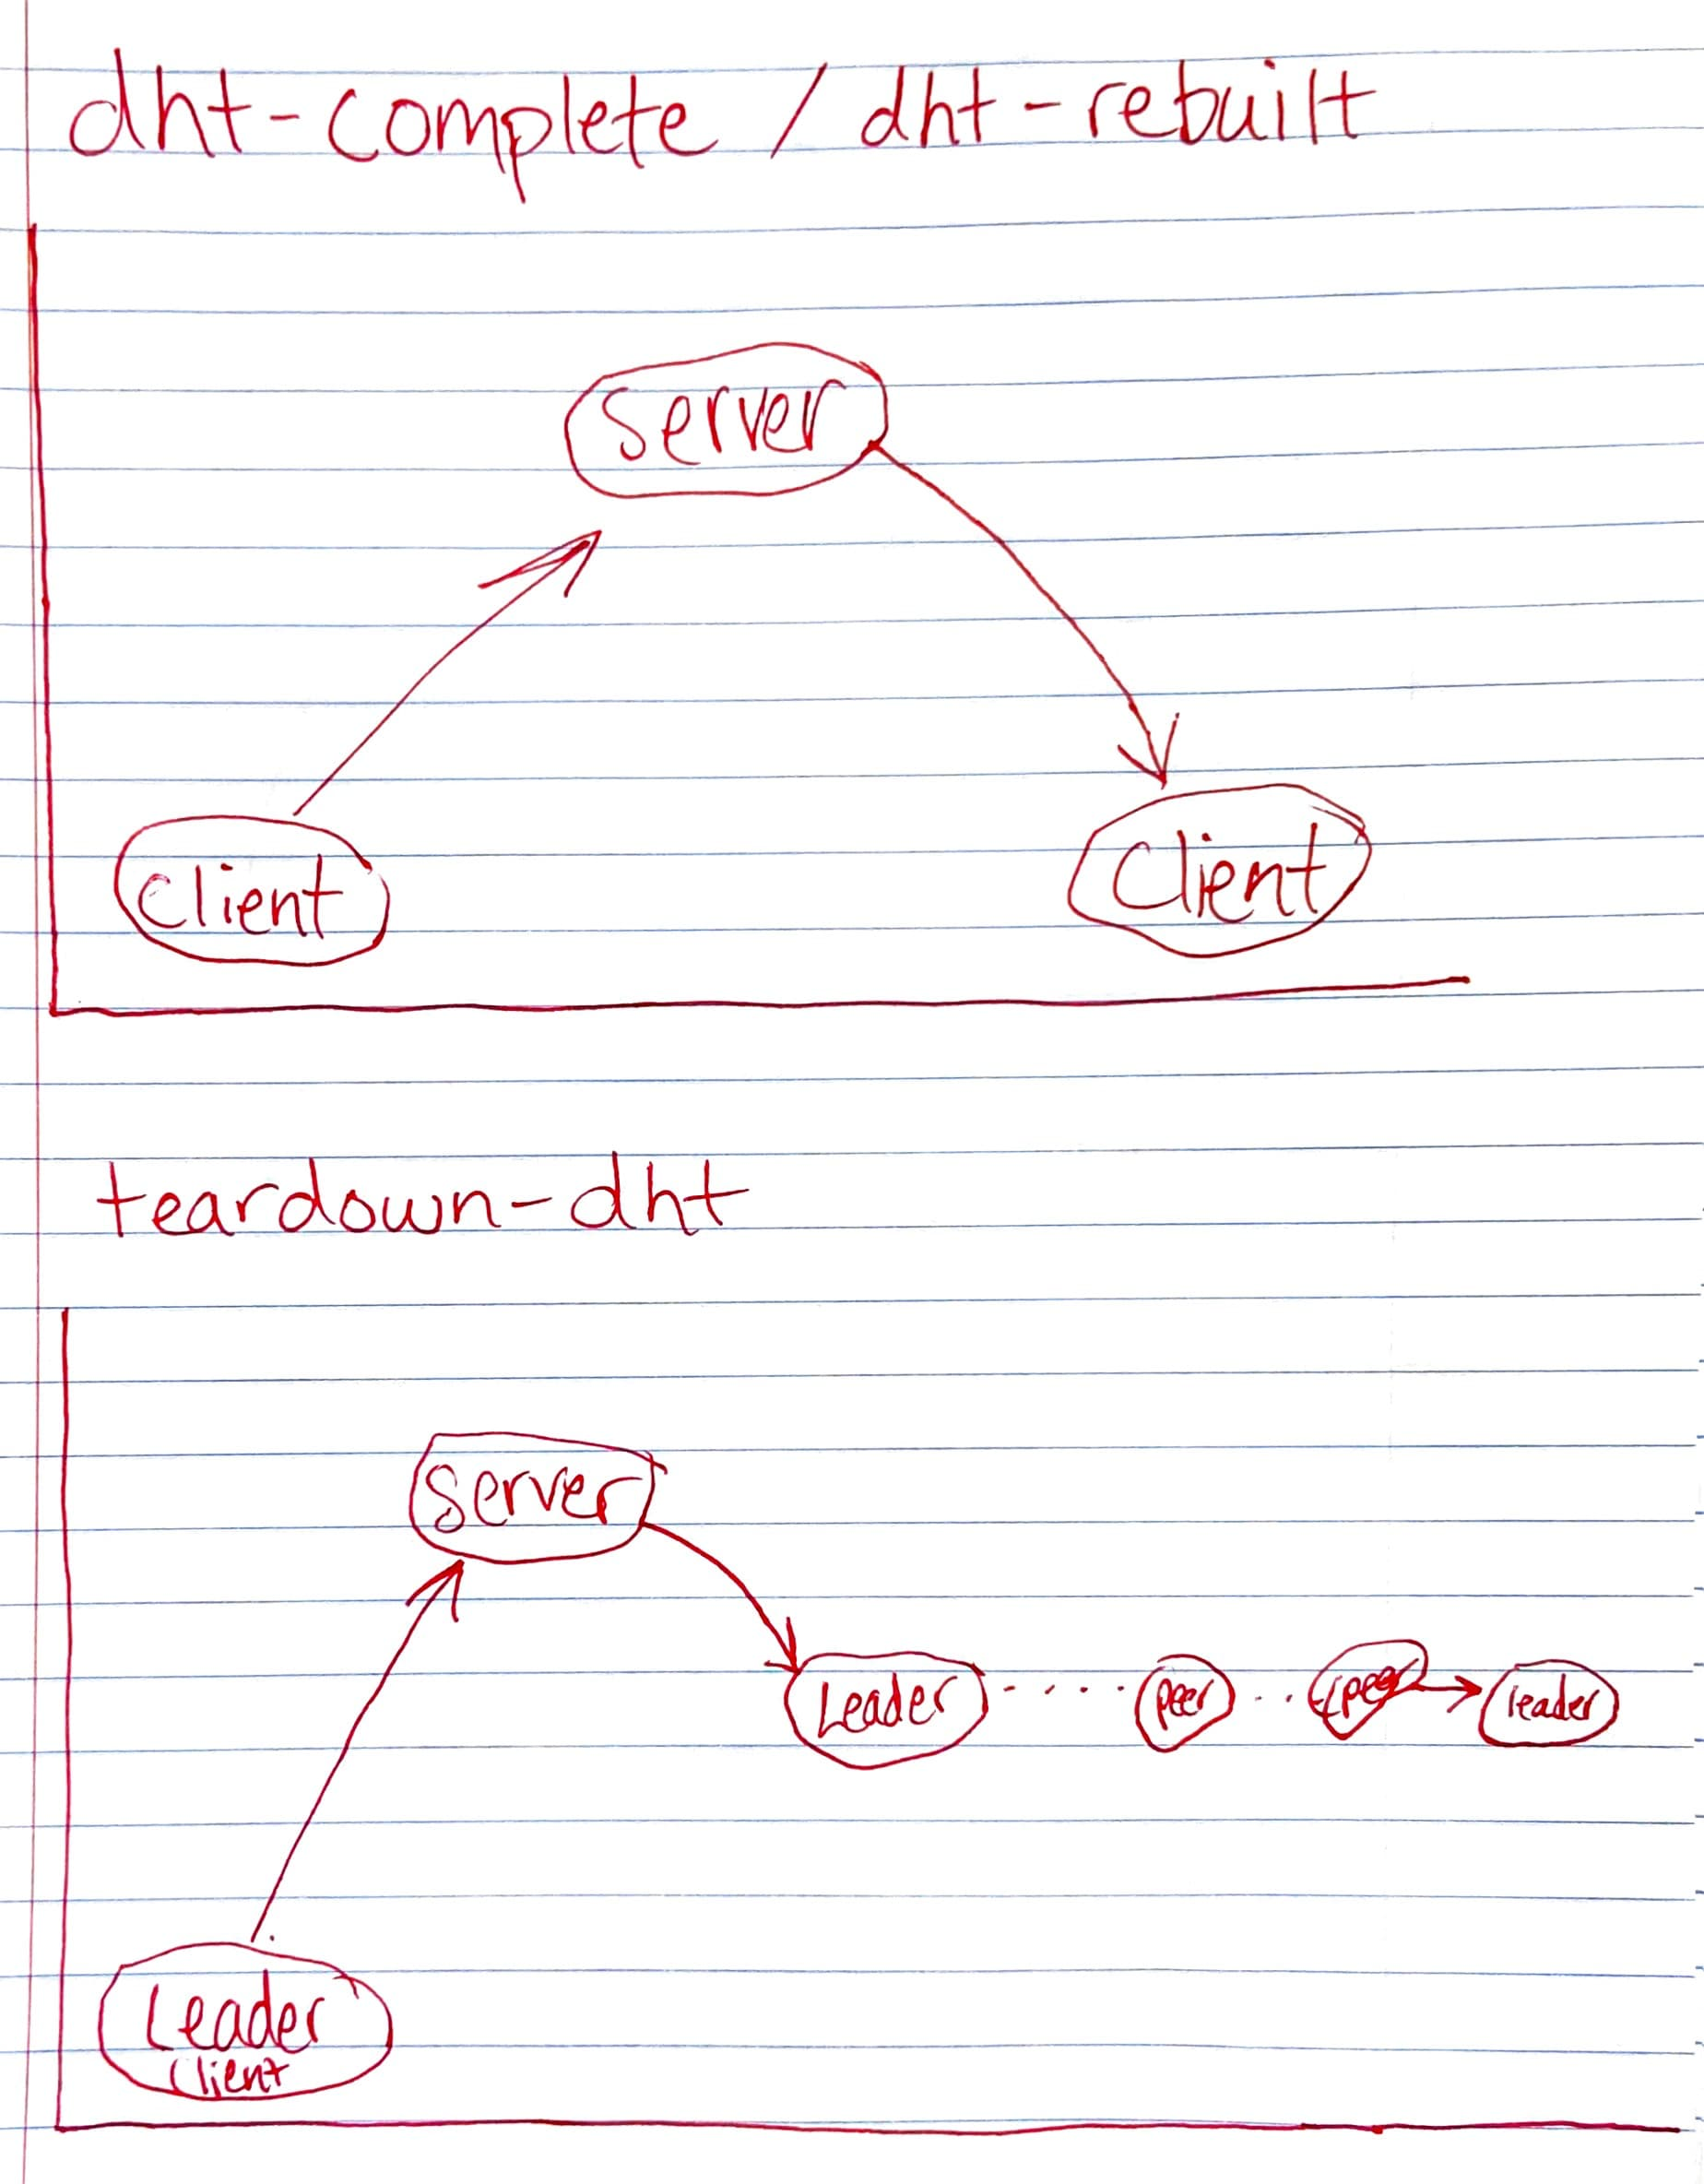 dht-complete / dht-rebuilt
Server
Client
Client
teardown-dht
Server
Leader
peer
peer
leader
Leader
Client